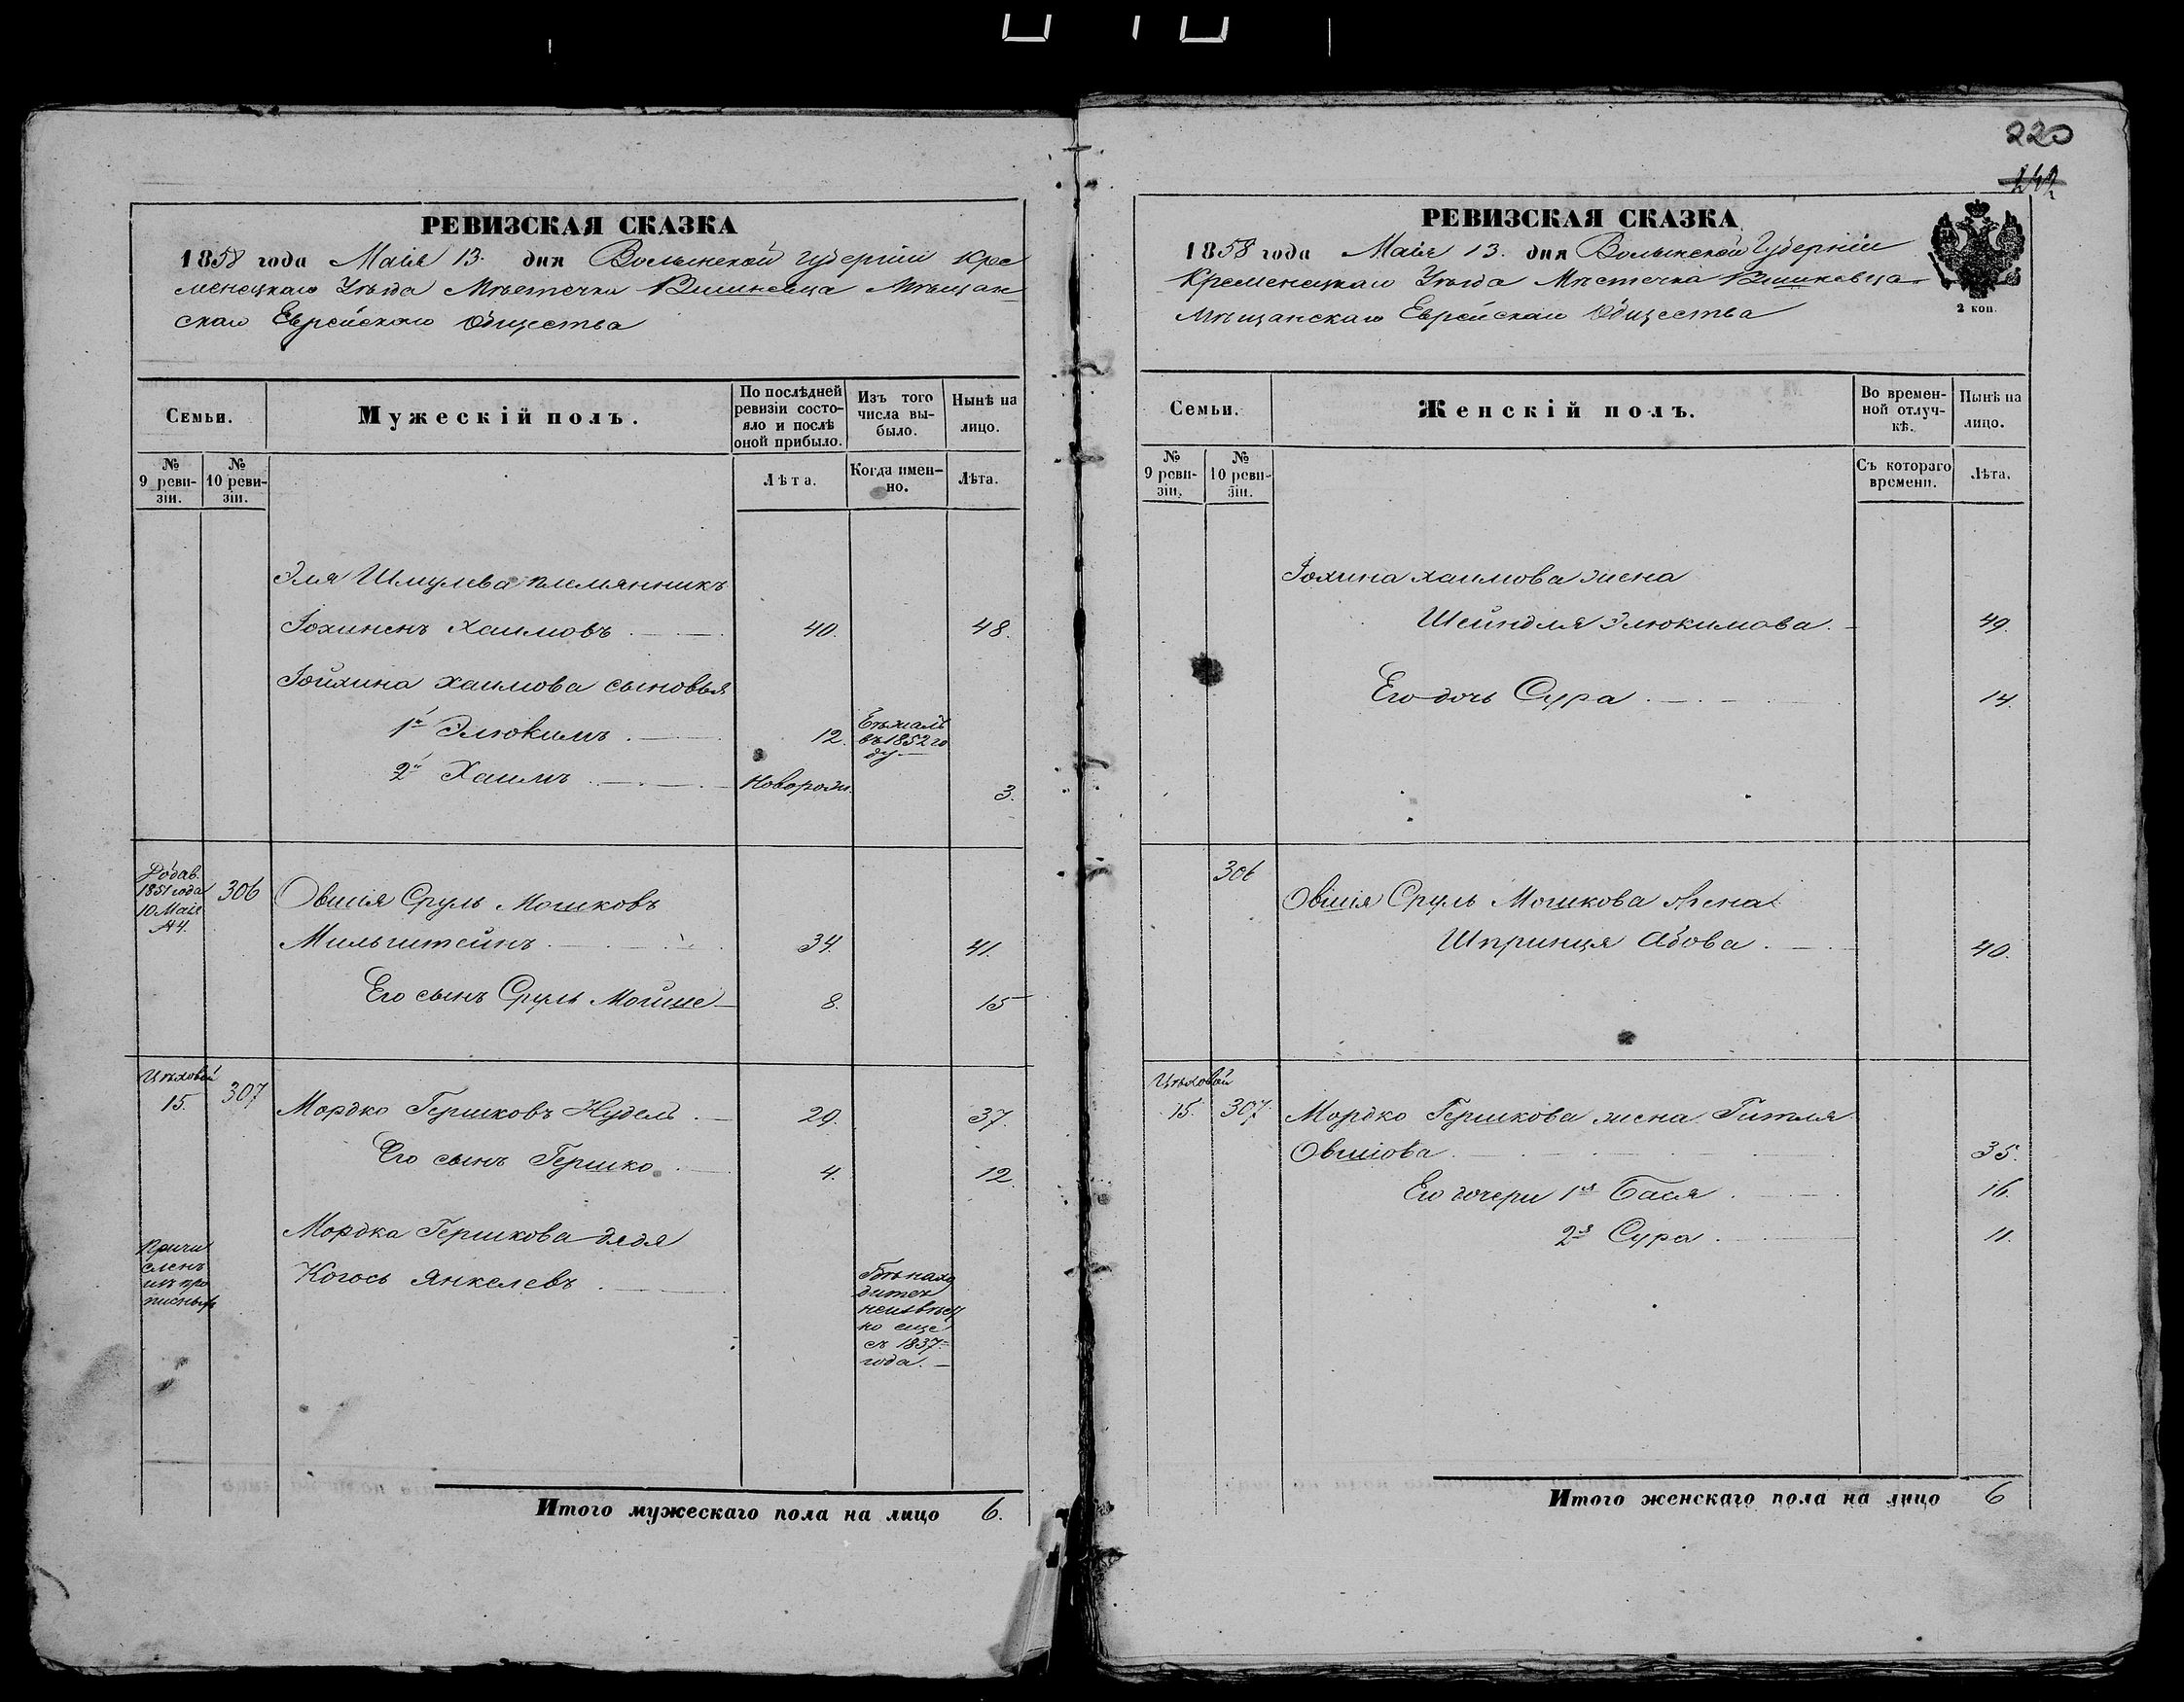 220
РЕВИЗСКАЯ СКАЗКА
1858 года Маія 13. дня Волынской губерніи Кре
менецкаго Уѣзда Мѣстечка Вишневца Мѣщан
скаго Еврейскаго Общества
Семьи.
Мужескій полъ.
По послѣдней
ревизіи состо-
яло и послѣ
оной прибыло.
Изъ того
числа вы-
было.
Нынѣ на
лицо.
№
9 реви-
зіи.
№
10 реви-
зіи.
Лѣта.
Когда имен-
но.
Лѣта.
Эля Шмулева племянникъ
Іохиненъ Хаимовъ 40. 48.
Іойхина Хаимова сыновья
1й Элюкимъ 12. Бѣжалъ
въ 1852 го
ду
2й Хаимъ Новорож. 3.
Добав.
1851 года
10 Маія
№ 4.
306 Овшія Сруль Мошковъ
Мильштейнъ 34. 41.
Его сынъ Сруль Мойше 8. 15
Цѣховой
15. 307 Мордко Гершковъ Нудель 29. 37.
Его сынъ Гершко 4. 12.
Мордка Гершкова дядя
Причи
сленъ
изъ про
писныхъ
Когосъ Янкелевъ
Гдѣ нахо
дится
неизвѣст
но еще
съ 1837
года.
Итого мужескаго пола на лицо 6.
РЕВИЗСКАЯ СКАЗКА
1858 года Маія 13. дня Волынской Губерніи
Кременецкаго Уѣзда Мѣстечка Вишневца
Мѣщанскаго Еврейскаго Общества
2 коп.
Семьи.
Женскій полъ.
Во времен-
ной отлуч-
кѣ.
Нынѣ на
лицо.
№
9 реви-
зіи.
№
10 реви-
зіи.
Съ котораго
времени.
Лѣта.
Іохина Хаимова жена
Шейндля Элюкимова. 49.
Его дочь Сура 14.
306
Овшія Сруль Мошкова жена
Шпринця Абова 40.
Цѣховой
15. 307. Мордко Гершкова жена Гитля
Овшіова 35.
Его дочери 1я Бася 16.
2я Сура 11.
Итого женскаго пола на лицо 6